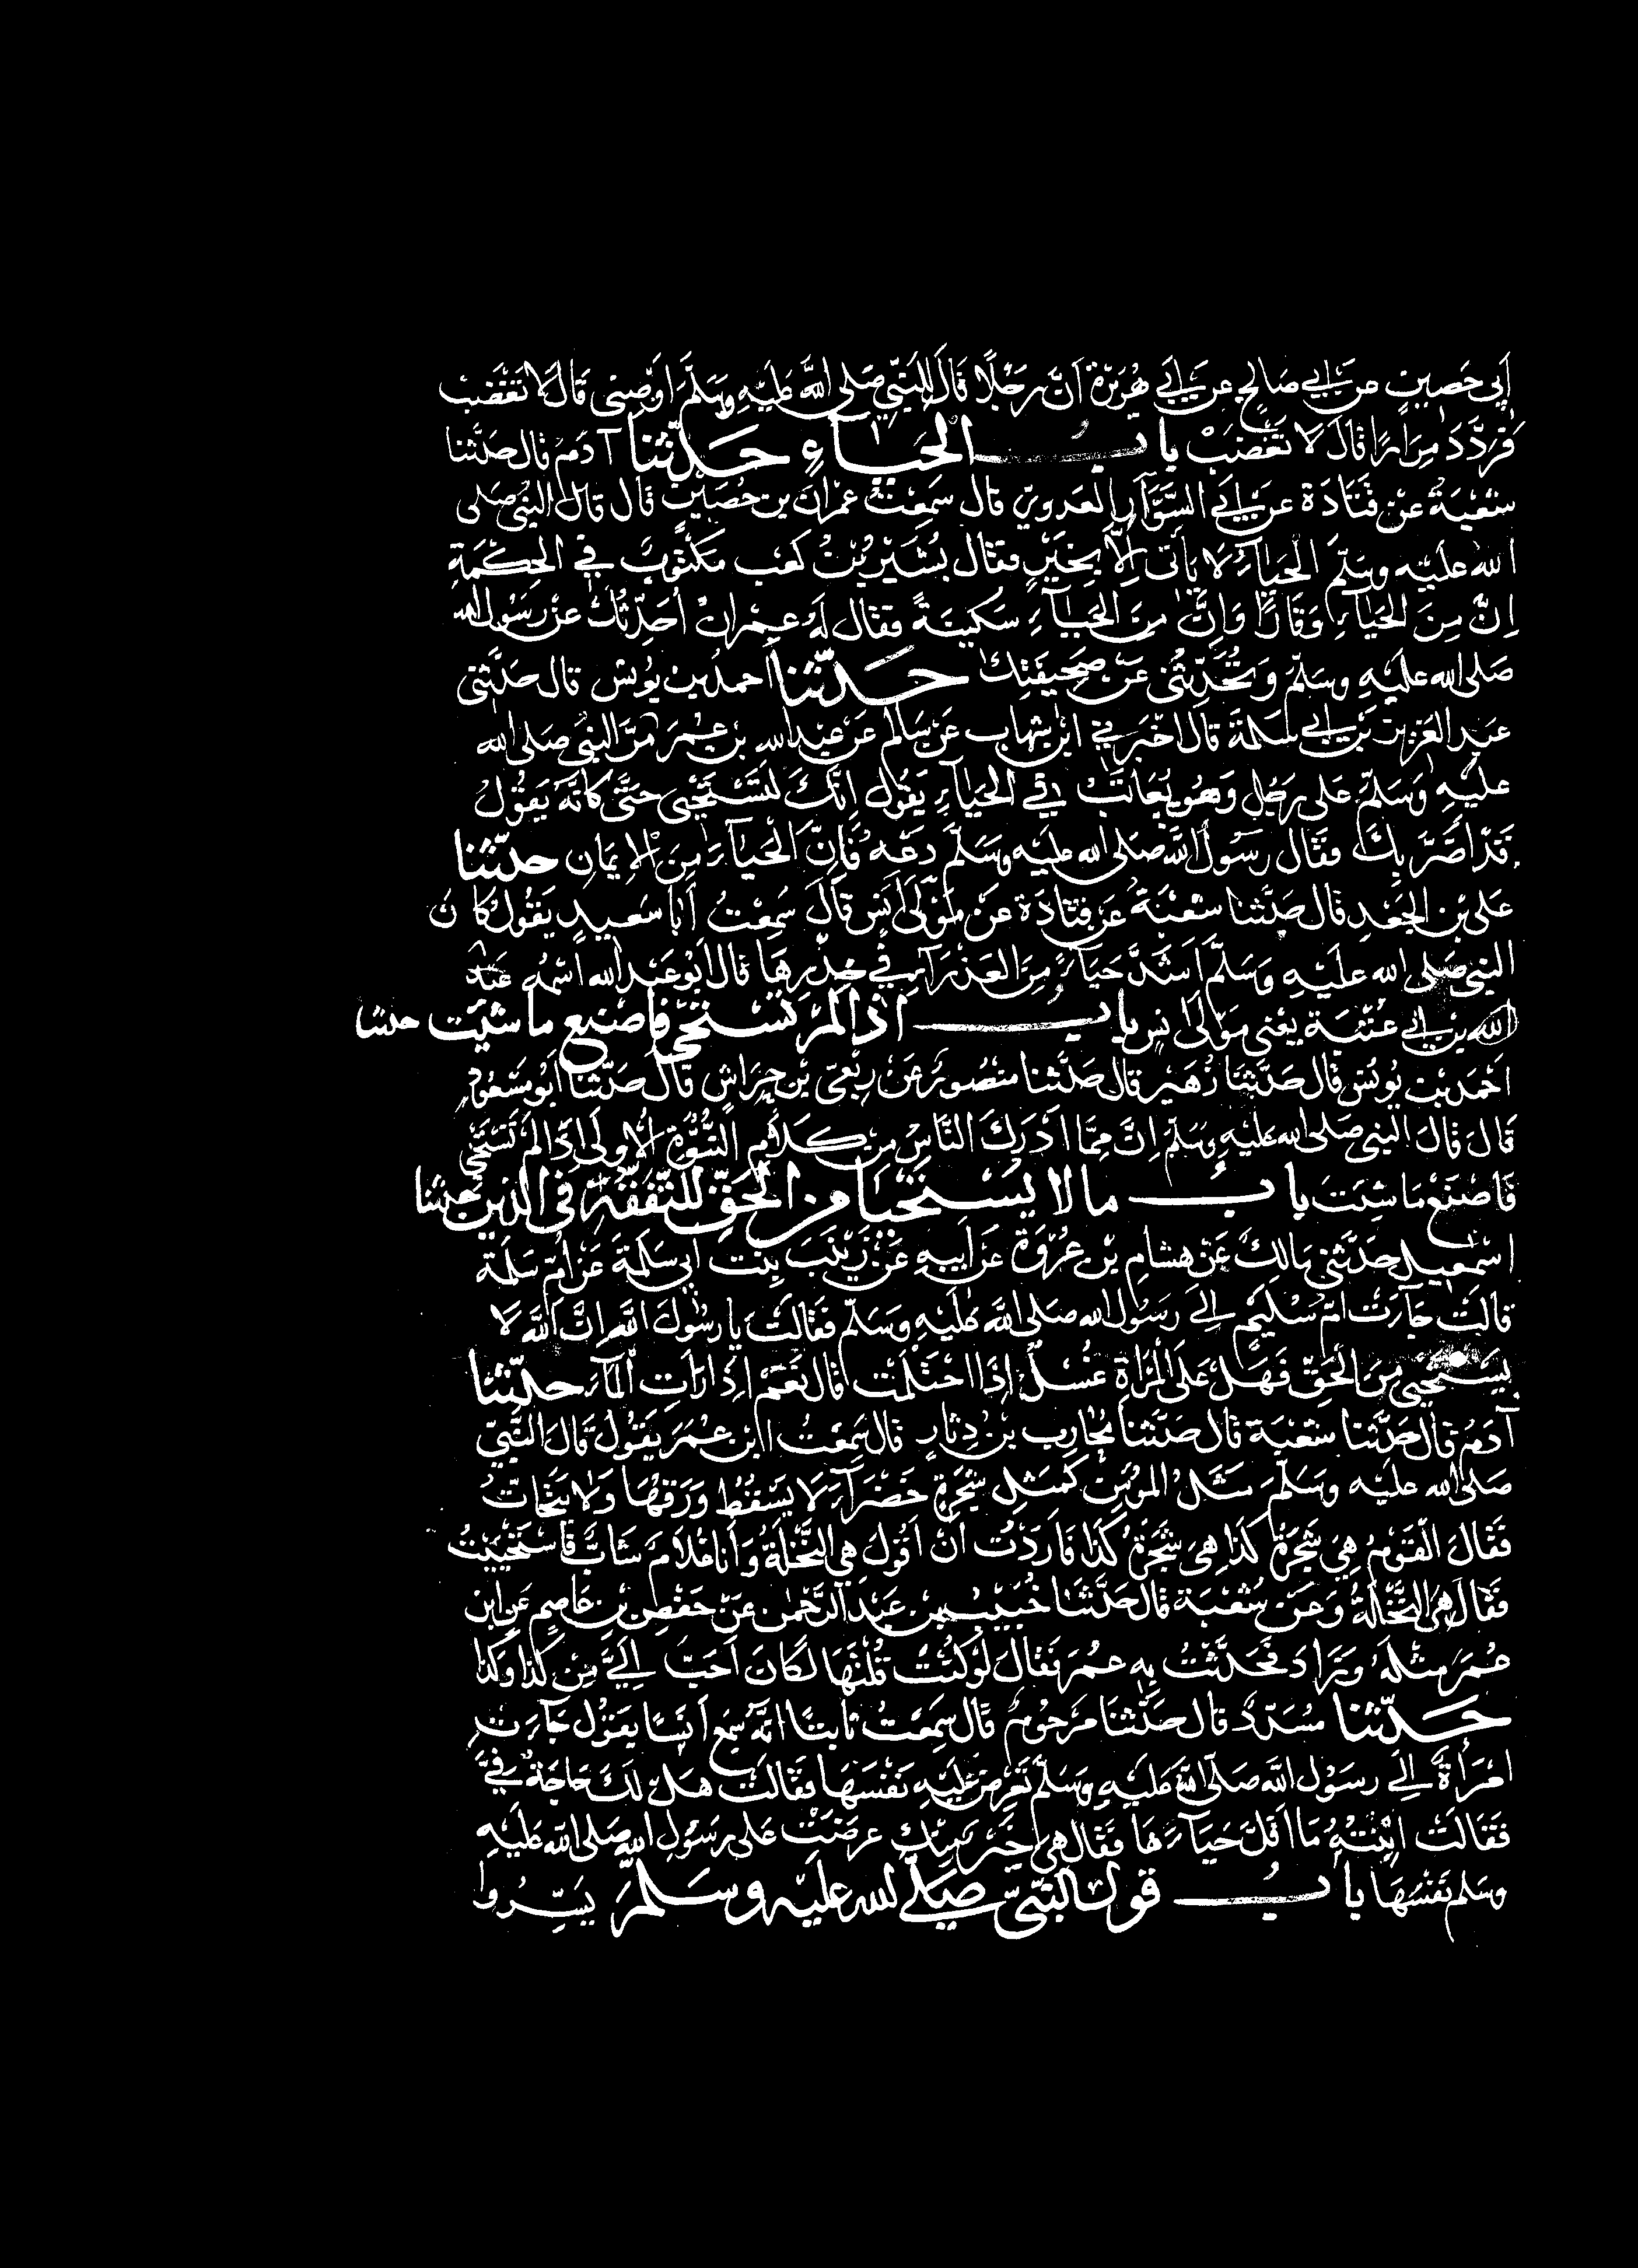 أَبِي حَصِينٍ عَنْ أَبِي صَالِحٍ عَنْ أَبِي هُرَيْرَةَ اَنَّ رَجُلًا قَالَ لِلنَّبِيِّ صَلَى اللَّهُ عَلَيْهِ وَسَلَّمَ اَوْصِنِى قَالَ لَا تَغْضَبْ
فَرَدَّدَ مِرَارًا قَالَ لَا تَغْضَبْ بابُ الحَيَاءِ حَدَّثَنَا آدَمُ قال حَدَّثَنا
شُعْبَةُ عَنْ قَتَادَةَ عَنْ أَبِي السَّوَّارِ العَدَوِيِّ قال سَمِعْتُ عِمْرَانَ بن حُصَيْنٍ قال قال النبيُ صَلى
الله عَلَيْهِ وسَلَّمَ الحَيَاءُ لا يَاْتِى اِلَّا بِخَيْرٍ فقال بُشَيْرُ بْنُ كَعْبٍ مَكْتُوبٌ في الحِكْمَةِ
اِنَّ مِنَ الحَيَاءِ وَقَارًا وَاِنَّ مِنَ الحَيَاءِ سَكِينَةً فَقَال لَهُ عِمْرَانُ اُحَدِّثُكَ عَنْ رَسُولِ الله
صَلى الله عَلَيْهِ وسَلّمَ وَتُحَدِّثُنِى عَنْ صَحِيفَتِكَ حَدَّثَنَا احمدُ بن يُونُسَ قال حَدَّثَنِى
عَبْدُ العَزِيزِ بْنُ أبي سَلَمَةَ قال اَخْبَرَنِي ابْنُ شِهَابٍ عَنْ سَالِمٍ عَنْ عَبْدِ الله بْنِ عُمَرَ مَرَّ النبيُ صَلى الله
عليْهِ وَسَلَّمَ عَلى رَجُلٍ وَهُوَ يُعَاتَبُ في الحَيَاءِ يَقُولُ اِنَّكَ لَتَسْتَحْيِى حَتَّى كَاَنَّهُ يَقُوْلُ
قَدْ اَضَرَّ بِكَ فقَال رَسُولُ اللَّه صَلى الله عليه وسَلَّمَ دَعْهُ فَاِنَّ الحَيَاءَ مِنَ الاِيمَانِ حدَّثنا
عَلى بْنُ الجَعْدِ قَال حَدَّثَنا شُعْبَةُ عَنْ قَتَادَةَ عَنْ مَوْلَى اَنَسٍ قَالَ سَمِعْتُ أَبَا سَعِيدٍ يَقُولُ كَانَ
النبيُ صَلى الله عَلَيْهِ وَسَلَّمَ اَشَدَّ حَيَاءً مِنَ العَذْرَاءِ فِي خِدْرِهَا قَال ابُو عَبْد الله اسْمُهُ عَبْدُ
الله بن أبي عُتْبَةَ يَعْنِي مَوْلَى اَنَسٍ بابُ اِذَا لَمْ تَسْتَحْيِ فَاصْنَعْ مَا شِئْتَ حدثنا
اَحْمَدُ بْنُ يُونُسَ قَال حَدَّثَنَا زُهَيْرٌ قال حَدَّثَنا مَنْصُورٌ عَنْ رِبْعِيِّ بْنِ حِرَاشٍ قَال حَدَّثَنَا أَبُو مَسْعُودٍ
قَالَ قَالَ النبيُ صَلى الله عليه وسَلّمَ اِنَّ مِمَّا اَدْرَكَ النَّاسُ مِنْ كَلَامِ النُّبُوَّةِ الاُولَى اِذَا لَمْ تَسْتَحْيِ
فَاصْنَعْ مَا شِئْتَ بابُ ما لا يُسْتَحْيَا مِنَ الحَقِّ لِلتَّفَقُّهِ فِي الدِّينِ حدثنا
اِسْمَعِيلُ حَدَّثَنِي مَالِكٌ عَنْ هِشَامِ بْنِ عُرْوَةَ عَنْ اَبِيهِ عَنْ زَيْنَبَ بِنْتِ ابي سَلَمَةَ عَنْ اُمِّ سَلَمَةَ
قَالَتْ جَاءَتْ اُمُّ سُلَيْمٍ الَى رَسُولِ الله صَلى اللَّه عَلَيْهِ وَسَلَّمَ فَقَالَتْ يَا رَسُولَ اللَّهِ اِنَّ اللَّهَ لَا
يَسْتَحْيِي مِنَ الحَقِّ فَهَلْ عَلَى المَرْاَةِ غُسْلٌ اِذَا احْتَلَمَتْ قَالَ نَعَمْ اِذَا رَاَتِ المَاءَ حَدَّثَنَا
آدَمُ قَالَ حَدَّثَنَا شُعْبَةُ قَال حَدَّثَنا مُحَارِبُ بْنُ دِثَارٍ قَال سَمِعْتُ ابن عُمَرَ يَقُولُ قَالَ النَّبِيُّ
صَلى الله عليْهِ وَسَلَّمَ مَثَلُ المُؤْمِنِ كَمَثَلِ شَجَرَةٍ خَضْرَاءَ لَا يَسْقُطُ وَرَقُهَا وَلَا يَتَحَاتُّ
فَقَالَ الْقَوْمُ هِيَ شَجَرَةُ كَذَا هِيَ شَجَرَةُ كَذَا فَاَرَدْتُ اَنْ اَقُولَ هِيَ النَّخْلَةُ وَاَنَا غُلَامٌ شَابٌّ فَاسْتَحْيَيْتُ
فَقَالَ هِيَ النَّخْلَةُ وَعَنْ شُعْبَةَ قَالَ حَدَّثَنَا خُبَيْبُ بن عَبْدِ الرَّحْمَنِ عَنْ حَفْصِ بْنِ عَاصِمٍ عَنِ ابْنِ
عُمَرَ مِثْلَهُ وَزَادَ فَحَدَّثْتُ بِهِ عُمَرَ فَقَالَ لَوْ كُنْتَ قُلْتَهَا لَكَانَ اَحَبَّ اِلَيَّ مِنْ كَذَا وَكَذَا
حَدَّثَنَا مُسَدَّدٌ قَالَ حَدَّثَنَا مَرْحُومٌ قَال سَمِعْتُ ثَابِتًا اَنَّهُ سَمِعَ اَنَسًا يَقُولُ جَاءَتِ
امْرَاَةٌ الَى رَسُولِ اللَّهِ صَلَّى اللَّهُ عَلَيْهِ وَسَلَّمَ تَعْرِضُ عَلَيْهِ نَفْسَهَا فَقَالَتْ هَلْ لَكَ حَاجَةٌ فِيَّ
فَقَالَتِ ابْنَتُهُ مَا اَقَلَّ حَيَاءَهَا فَقَالَ هِيَ خَيْرٌ مِنْكِ عَرَضَتْ عَلى رَسُولِ الله صَلى الله عَلَيْهِ
وسَلم نَفْسَهَا بابُ قَوْلِ النَّبِيِّ صَلَّى الله عَلَيْهِ وَسَلَّمَ يَسِّرُوا